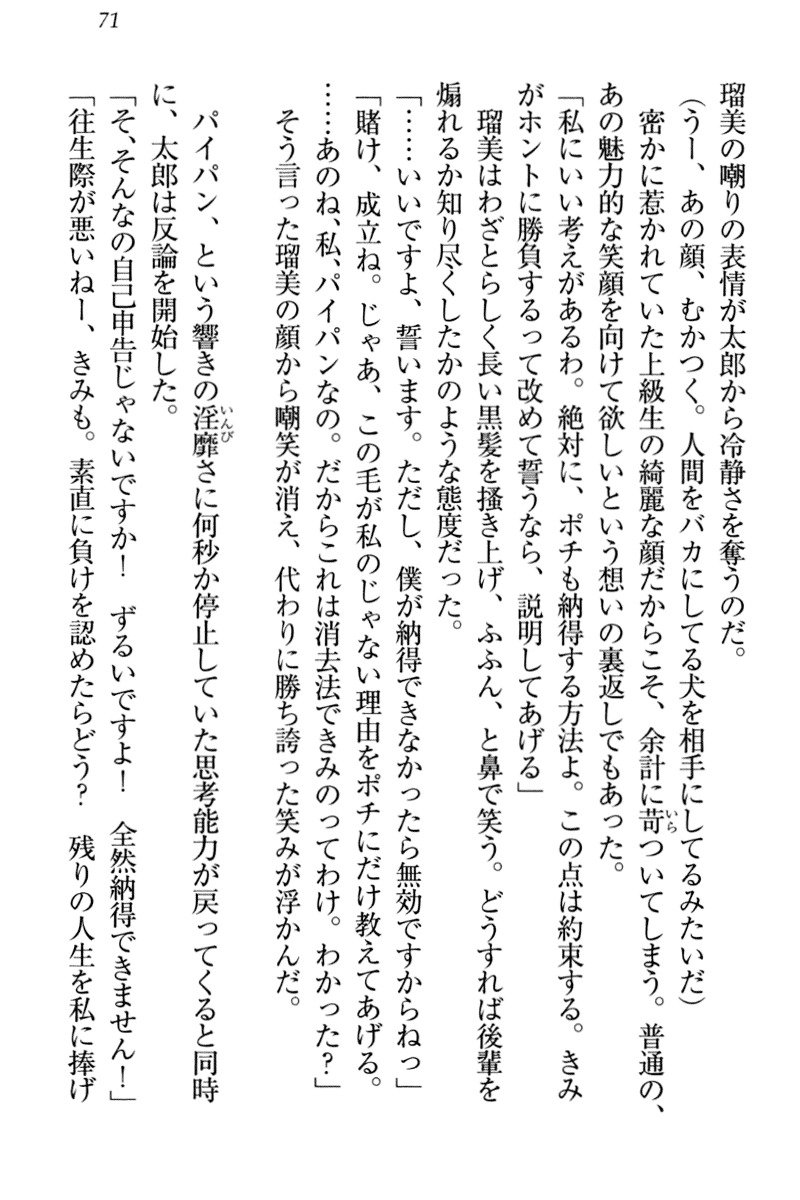 71
瑠美の嘲りの表情が太郎から冷静さを奪うのだ。
(うー、あの顔、むかつく。人間をバカにしてる犬を相手にしてるみたいだ)
密かに惹かれていた上級生の綺麗な顔だからこそ、余計に苛ついてしまう。普通の、
あの魅力的な笑顔を向けて欲しいという想いの裏返しでもあった。
「私にいい考えがあるわ。絶対に、ポチも納得する方法よ。この点は約束する。きみ
がホントに勝負するって改めて誓うなら、説明してあげる」
瑠美はわざとらしく長い黒髪を掻き上げ、ふふん、と鼻で笑う。どうすれば後輩を
煽れるか知り尽くしたかのような態度だった。
「……いいですよ、誓います。ただし、僕が納得できなかったら無効ですからねっ」
「賭け、成立ね。じゃあ、この毛が私のじゃない理由をポチにだけ教えてあげる。
……あのね、私、パイパンなの。だからこれは消去法できみのってわけ。わかった?」
そう言った瑠美の顔から嘲笑が消え、代わりに勝ち誇った笑みが浮かんだ。
パイパン、という響きの淫靡さに何秒か停止していた思考能力が戻ってくると同時
に、太郎は反論を開始した。
「そ、そんなの自己申告じゃないですか! ずるいですよ! 全然納得できません!」
「往生際が悪いねー、きみも。素直に負けを認めたらどう? 残りの人生を私に捧げ